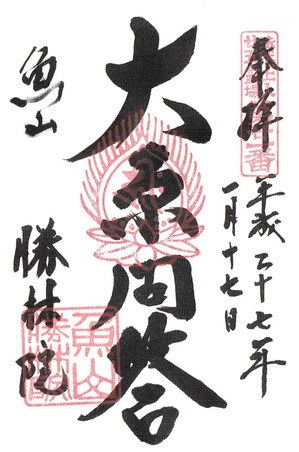 奉拝
平成二十七年
一月十七日
大原問答
魚山
勝林院
魚山
勝林院